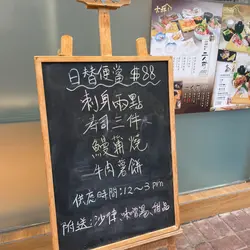 日替便當 $88
刺身兩點
壽司三件
鰻蒲燒
牛肉薯餅
供應時間:12~3pm
附送:沙律,味噌湯,甜品